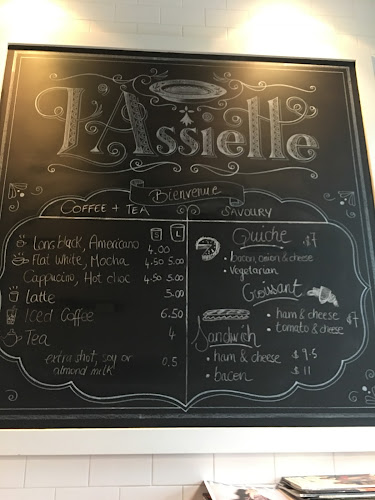 L'Assiette
Bienvenue
COFFEE + TEA
S L
Long black, Americano 4.00
Flat White, Mocha 4.50 5.00
Cappucino, Hot choc 4.50 5.00
latte 5.00
Iced Coffee 6.50
Tea 4
extra shot, soy or almond milk 0.5
SAVOURY
Quiche $7
• bacon, onion & cheese
• Vegetarian
Croissant
• ham & cheese $7
• tomato & cheese
Sandwich
• ham & cheese $9.5
• bacon $11